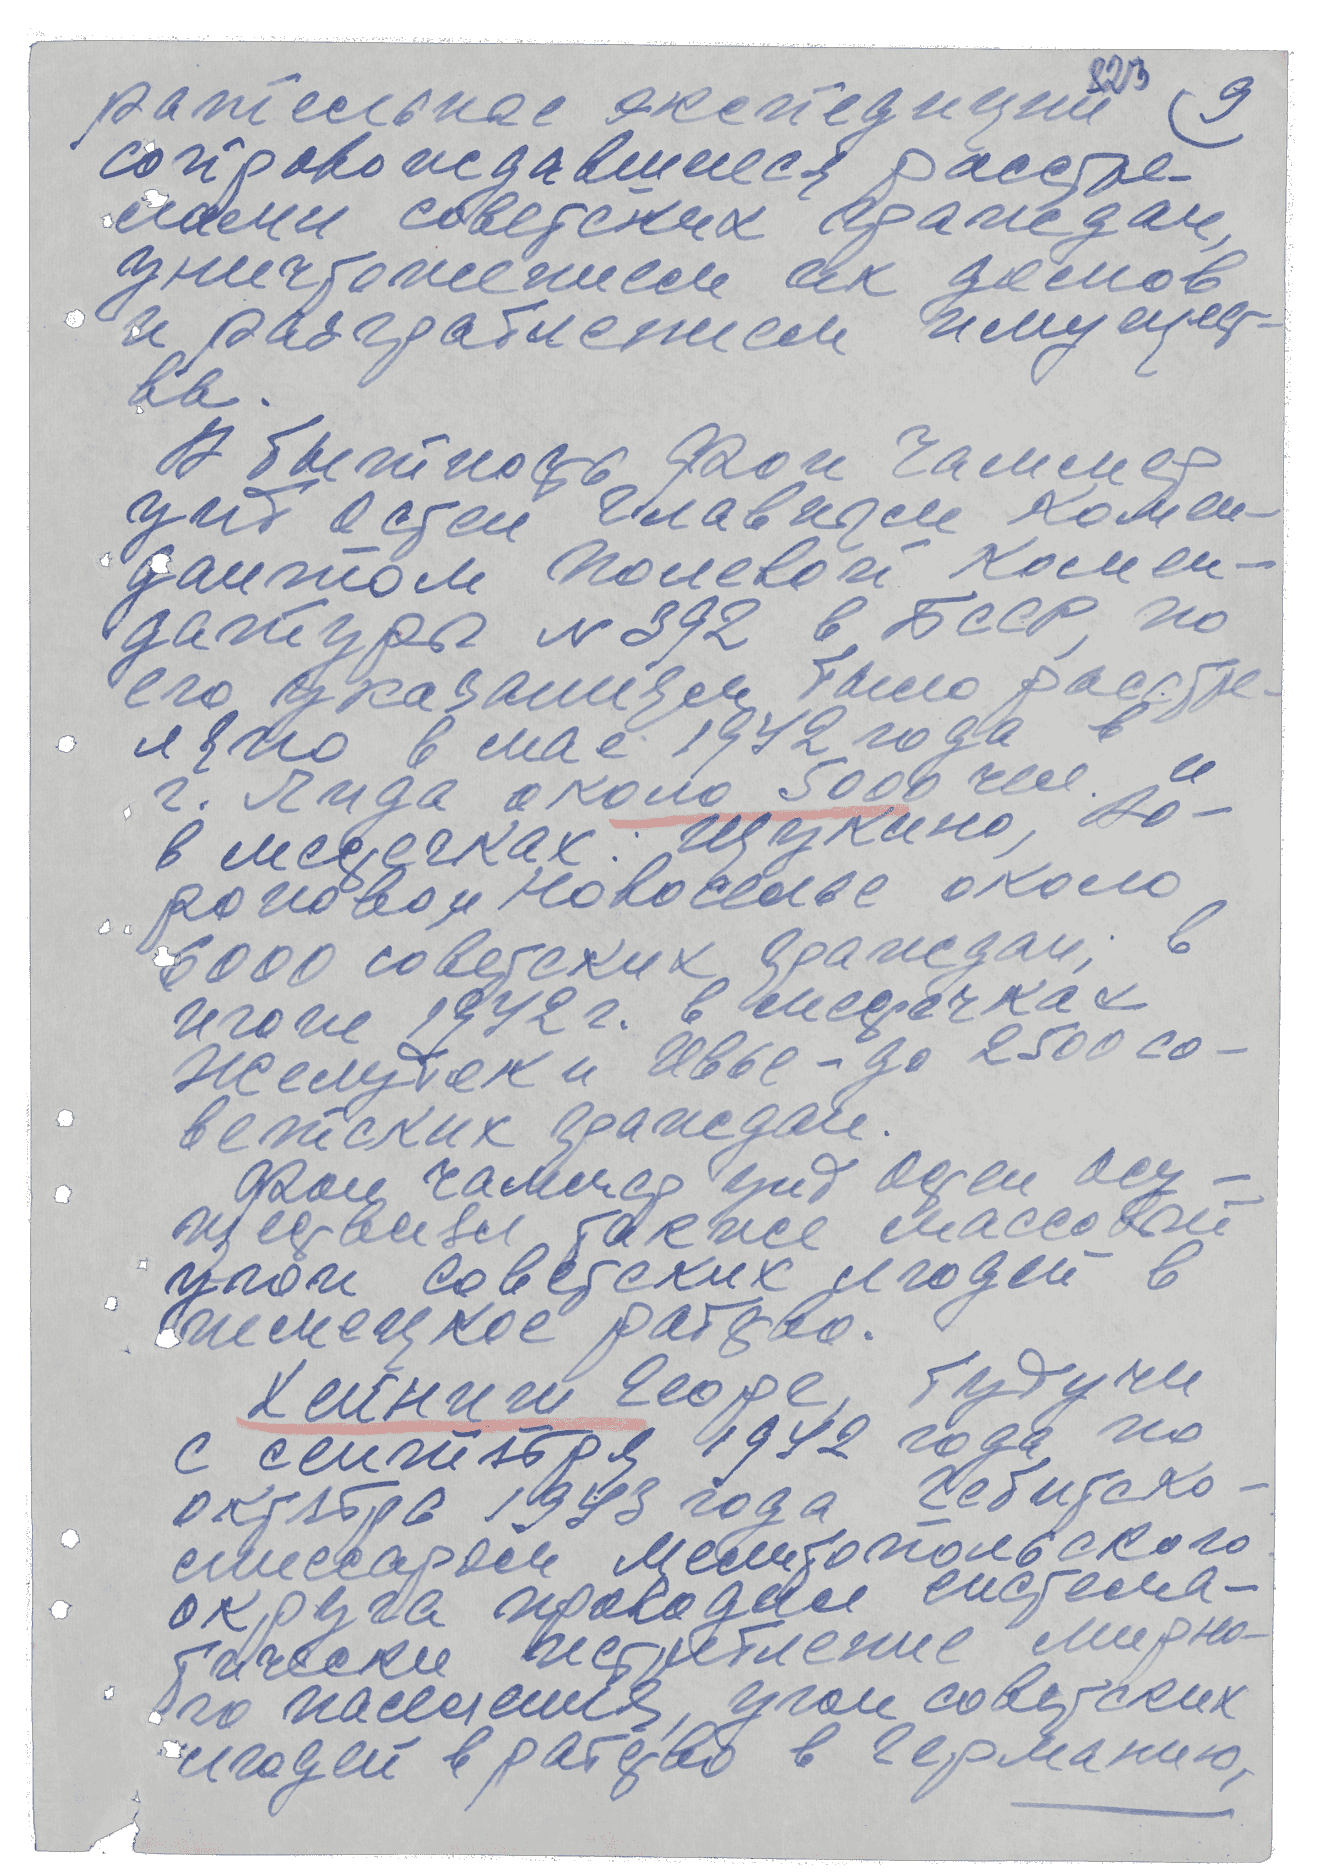 823 9
рательные экспедиции
сопровождавшиеся расстре-
лами советских граждан,
уничтожением их домов
и разграблением имущест-
ва.
В бытность фон Чаммер
унд Остен главным комен-
дантом полевой комен-
датуры № 392 в БССР, по
его указаниям было расстре-
ляно в мае 1942 года в
г. Лида около 5000 чел. и
в местечках: Щукино, Во-
роновои Новоселье около
6000 советских граждан; в
июне 1942 г. в местечках
Желудок и Ивье – до 2500 со-
ветских граждан.
Фон Чаммер унд Остен осу-
ществлял также массовый
угон советских людей в
немецкое рабство.
Хейниш Георг, будучи
с сентября 1942 года по
октябрь 1943 года Гебитско-
миссаром Мелитопольского
округа проводил система-
тически истребление мирно-
го населения, угон советских
людей в рабство в Германию,